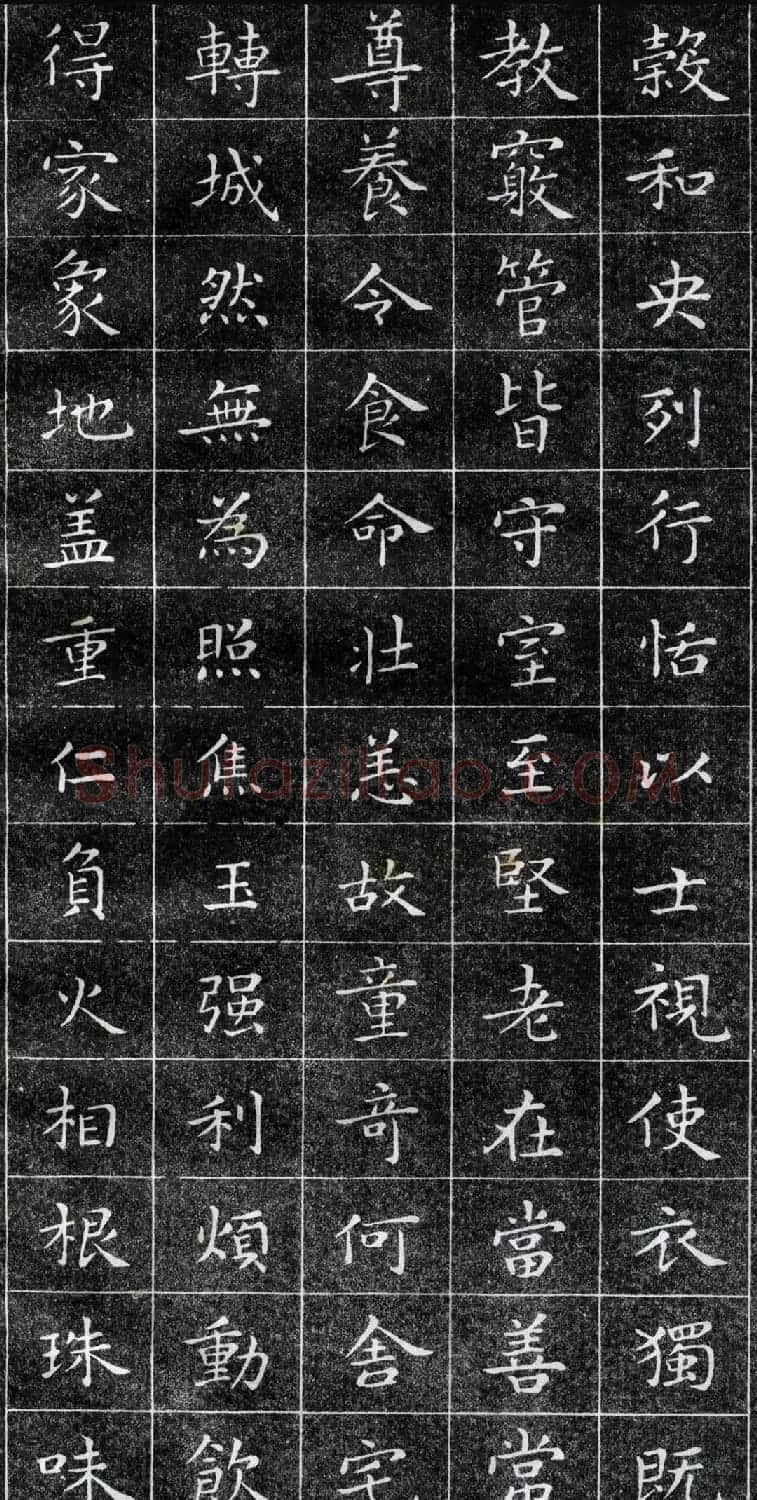 和央列行恬以士視使衣獨既
教管皆守室至堅老在當善當
尊養令食命壯恙故童奇何舍宅
轉城然無為照焦玉强利煩動飲
得家象地盖重仁負火相根珠味
Shufaziliao.COM